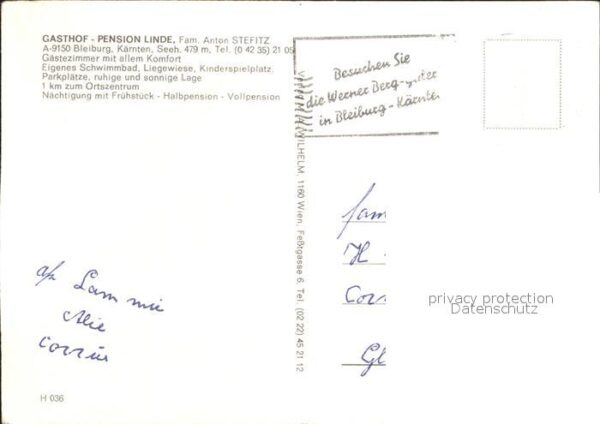 GASTHOF - PENSION LINDE, Fam. Anton STEFITZ
A-9150 Bleiburg, Kärnten, Seeh. 479 m, Tel. (0 42 35) 21 05
Gästezimmer mit allem Komfort
Eigenes Schwimmbad, Liegewiese, Kinderspielplatz,
Parkplätze, ruhige und sonnige Lage
1 km zum Ortszentrum
Nächtigung mit Frühstück - Halbpension - Vollpension
Besuchen Sie
die Werner Berg-
in Bleiburg-Kärnten
WILHELM, 1160 Wien, Feßtgasse 6, Tel. (02 22) 45 21 12
fam
H
Cor
Gl
privacy protection
Datenschutz
H 036